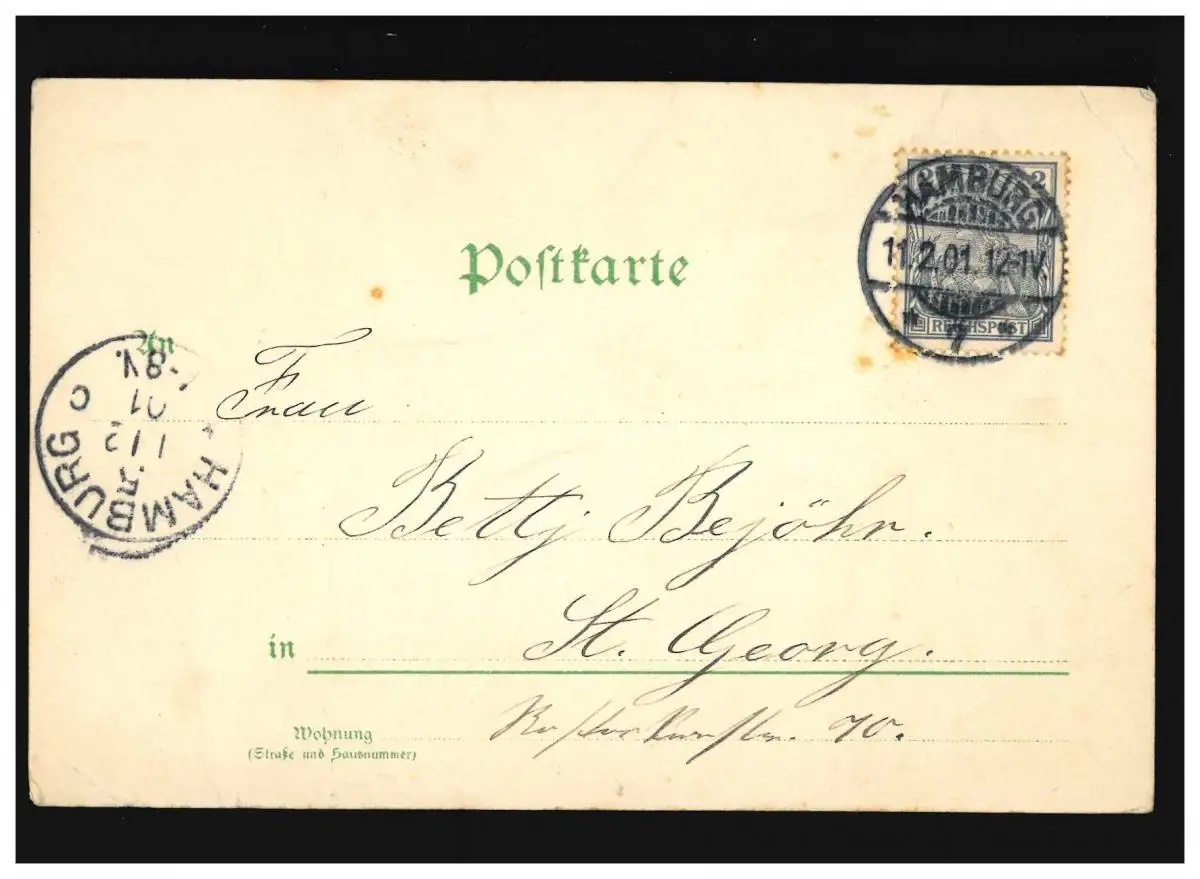 Postkarte
2 2
REICHSPOST
HAMBURG
11.2.01. 12-1V.
* 7 *
An
Frau
Betty Bejöhr.
in St. Georg.
Wohnung 70.
(Straße und Hausnummer)
HAMBURG C
11/2
01
-8V.